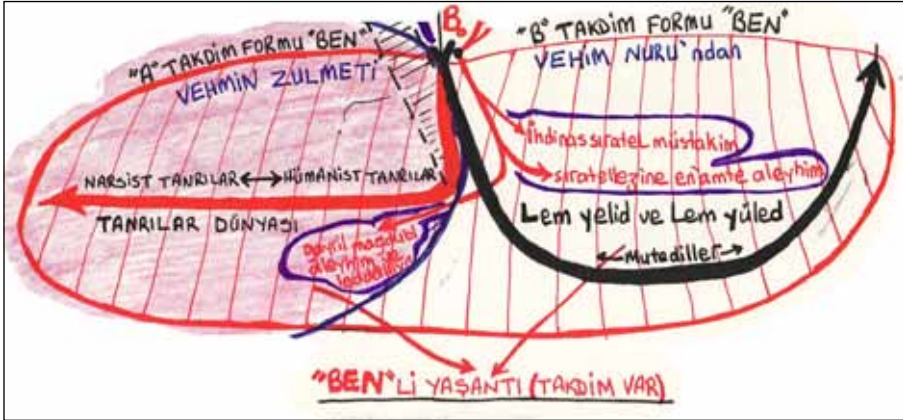 "A" TAKDİM FORMU "BEN"
VEHMİN ZULMETİ
B
"B" TAKDİM FORMU "BEN"
VEHİM NURU'ndan
İhdinassıratel müstakim
sıratellezine en'amte aleyhim
NARSİST TANRILAR ↔ HÜMANİST TANRILAR
TANRILAR DÜNYASI
Lem yelid ve Lem yûled
←Mutediller→
gayril mağdubi
aleyhim ve
"BEN"Lİ YAŞANTI (TAKDİM VAR)